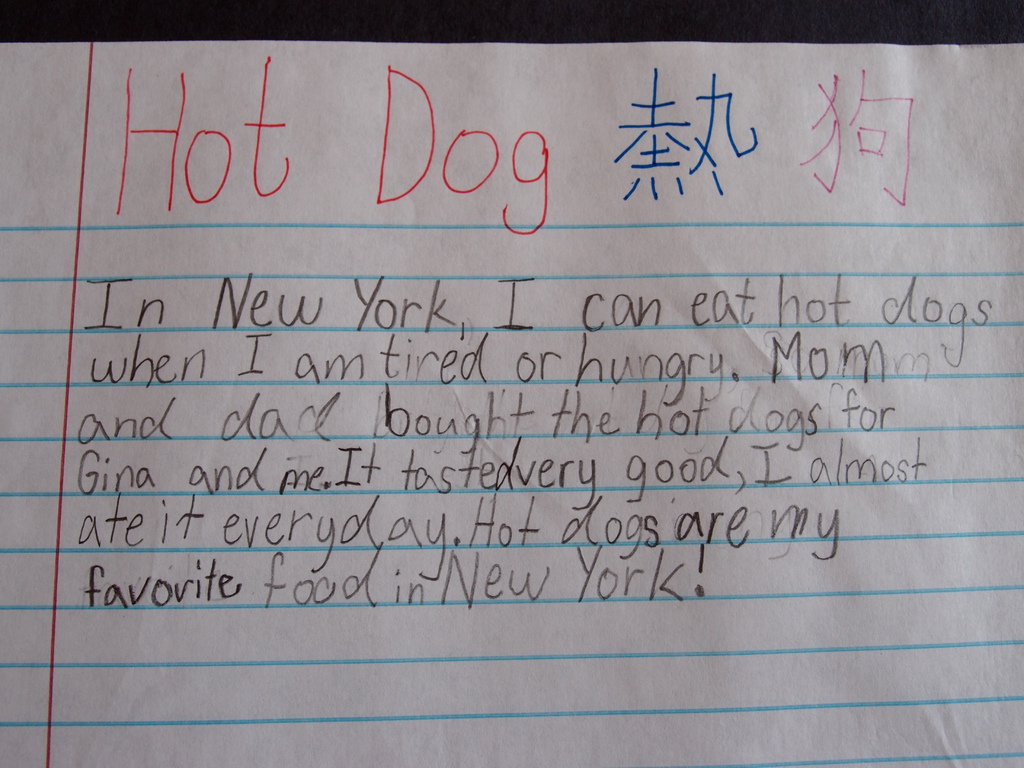 Hot Dog 熱 狗
In New York, I can eat hot dogs
when I am tired or hungry. Mom
and dad bought the hot dogs for
Gina and me. It tasted very good, I almost
ate it everyday. Hot dogs are my
favorite food in New York!